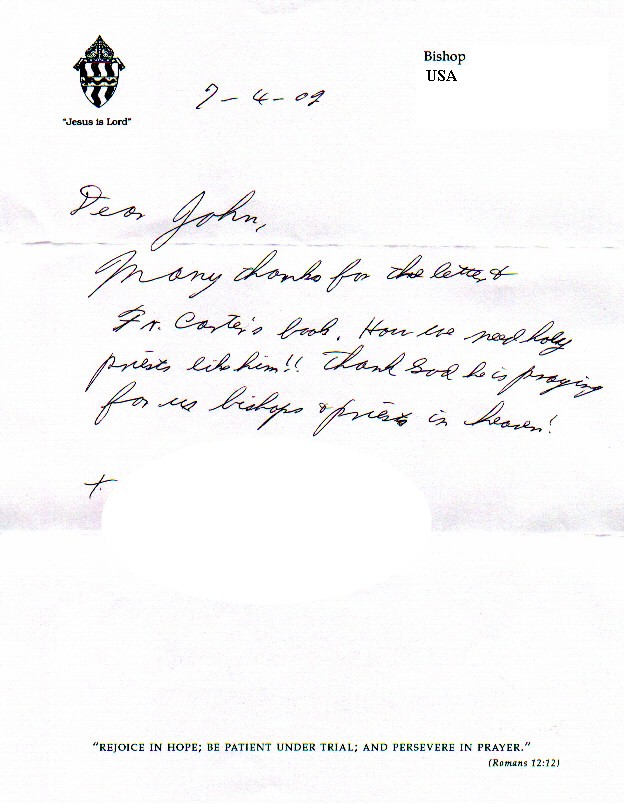 Bishop
USA
"Jesus is Lord"
7-4-09
Dear John,
Many thanks for the letter &
Fr. Carter's book. How we need holy
priests like him!! Thank God he is praying
for us bishops & priests in heaven!
+
"REJOICE IN HOPE; BE PATIENT UNDER TRIAL; AND PERSEVERE IN PRAYER."
(Romans 12:12)